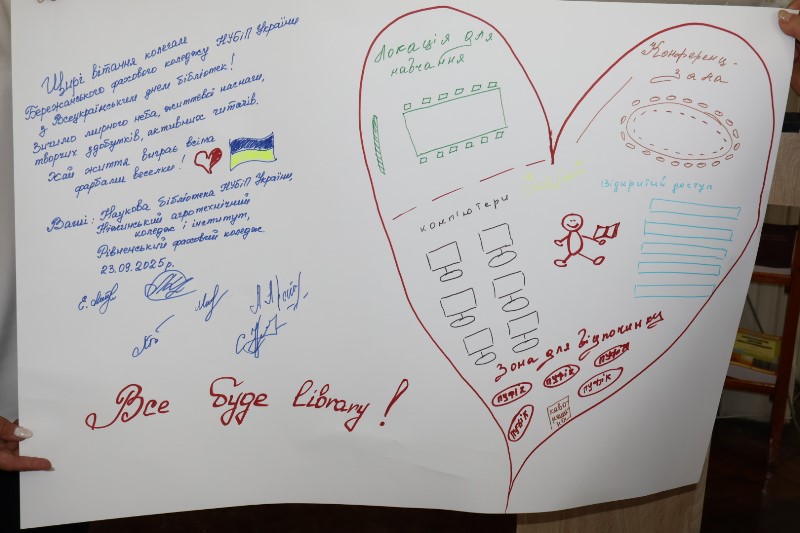 Щирі вітання колегам
Бережанського фахового коледжу НУБіП України
з Всеукраїнським днем бібліотек!
Зичимо мирного неба, життєвої наснаги,
творчих здобутків, активних читачів.
Хай життя виграє всіма
фарбами веселки!
Ваші: Наукова бібліотека НУБіП України,
Ніжинський агротехнічний
коледж і інститут,
Рівненський фаховий коледж
23.09.2025р.
Все буде Library!
Локація для
навчання
Конференц.
зала
комп'ютери
Відкритий доступ
Зона для відпочинку
пуфік
пуфік
пуфік
пуфік
пуфік